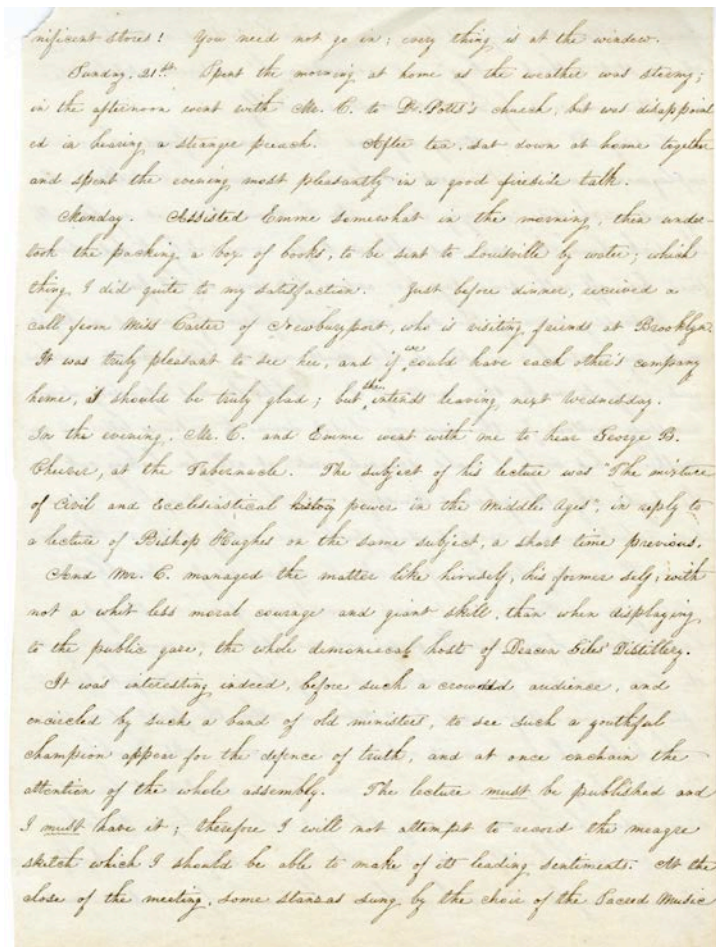 nificent stores! You need not go in; every thing is at the window.
Sunday, 21st. Spent the morning at home as the weather was stormy;
in the afternoon went with Mr. C. to Dr. Potts's church, but was disappoint
ed in hearing a stranger preach. After tea, sat down at home together
and spent the evening most pleasantly in a good fireside talk.
Monday. Assisted Emme somewhat in the morning, then under-
took the packing a box of books, to be sent to Louisville by water; which
thing I did quite to my satisfaction. Just before dinner, received a
call from Miss Carter of Newburyport, who is visiting friends at Brooklyn.
It was truly pleasant to see her, and if we could have each other's company
home, I should be truly glad; but she intends leaving next Wednesday.
In the evening, Mr. C. and Emme went with me to hear George B.
Cheever, at the Tabernacle. The subject of his lecture was "The mixture
of Civil and Ecclesiastical history power in the Middle Ages", in reply to
a lecture of Bishop Hughes on the same subject, a short time previous.
And Mr. C. managed the matter like himself, his former self; with
not a whit less moral courage and giant skill, than when displaying
to the public gaze, the whole demoniacal host of Deacon Giles' Distillery.
It was interesting indeed, before such a crowded audience, and
encircled by such a band of old ministers, to see such a youthful
champion appear for the defence of truth, and at once enchain the
attention of the whole assembly. The lecture must be published and
I must have it; therefore I will not attempt to record the meagre
sketch which I should be able to make of its leading sentiments. At the
close of the meeting, some stanzas sung by the choir of the Sacred Music